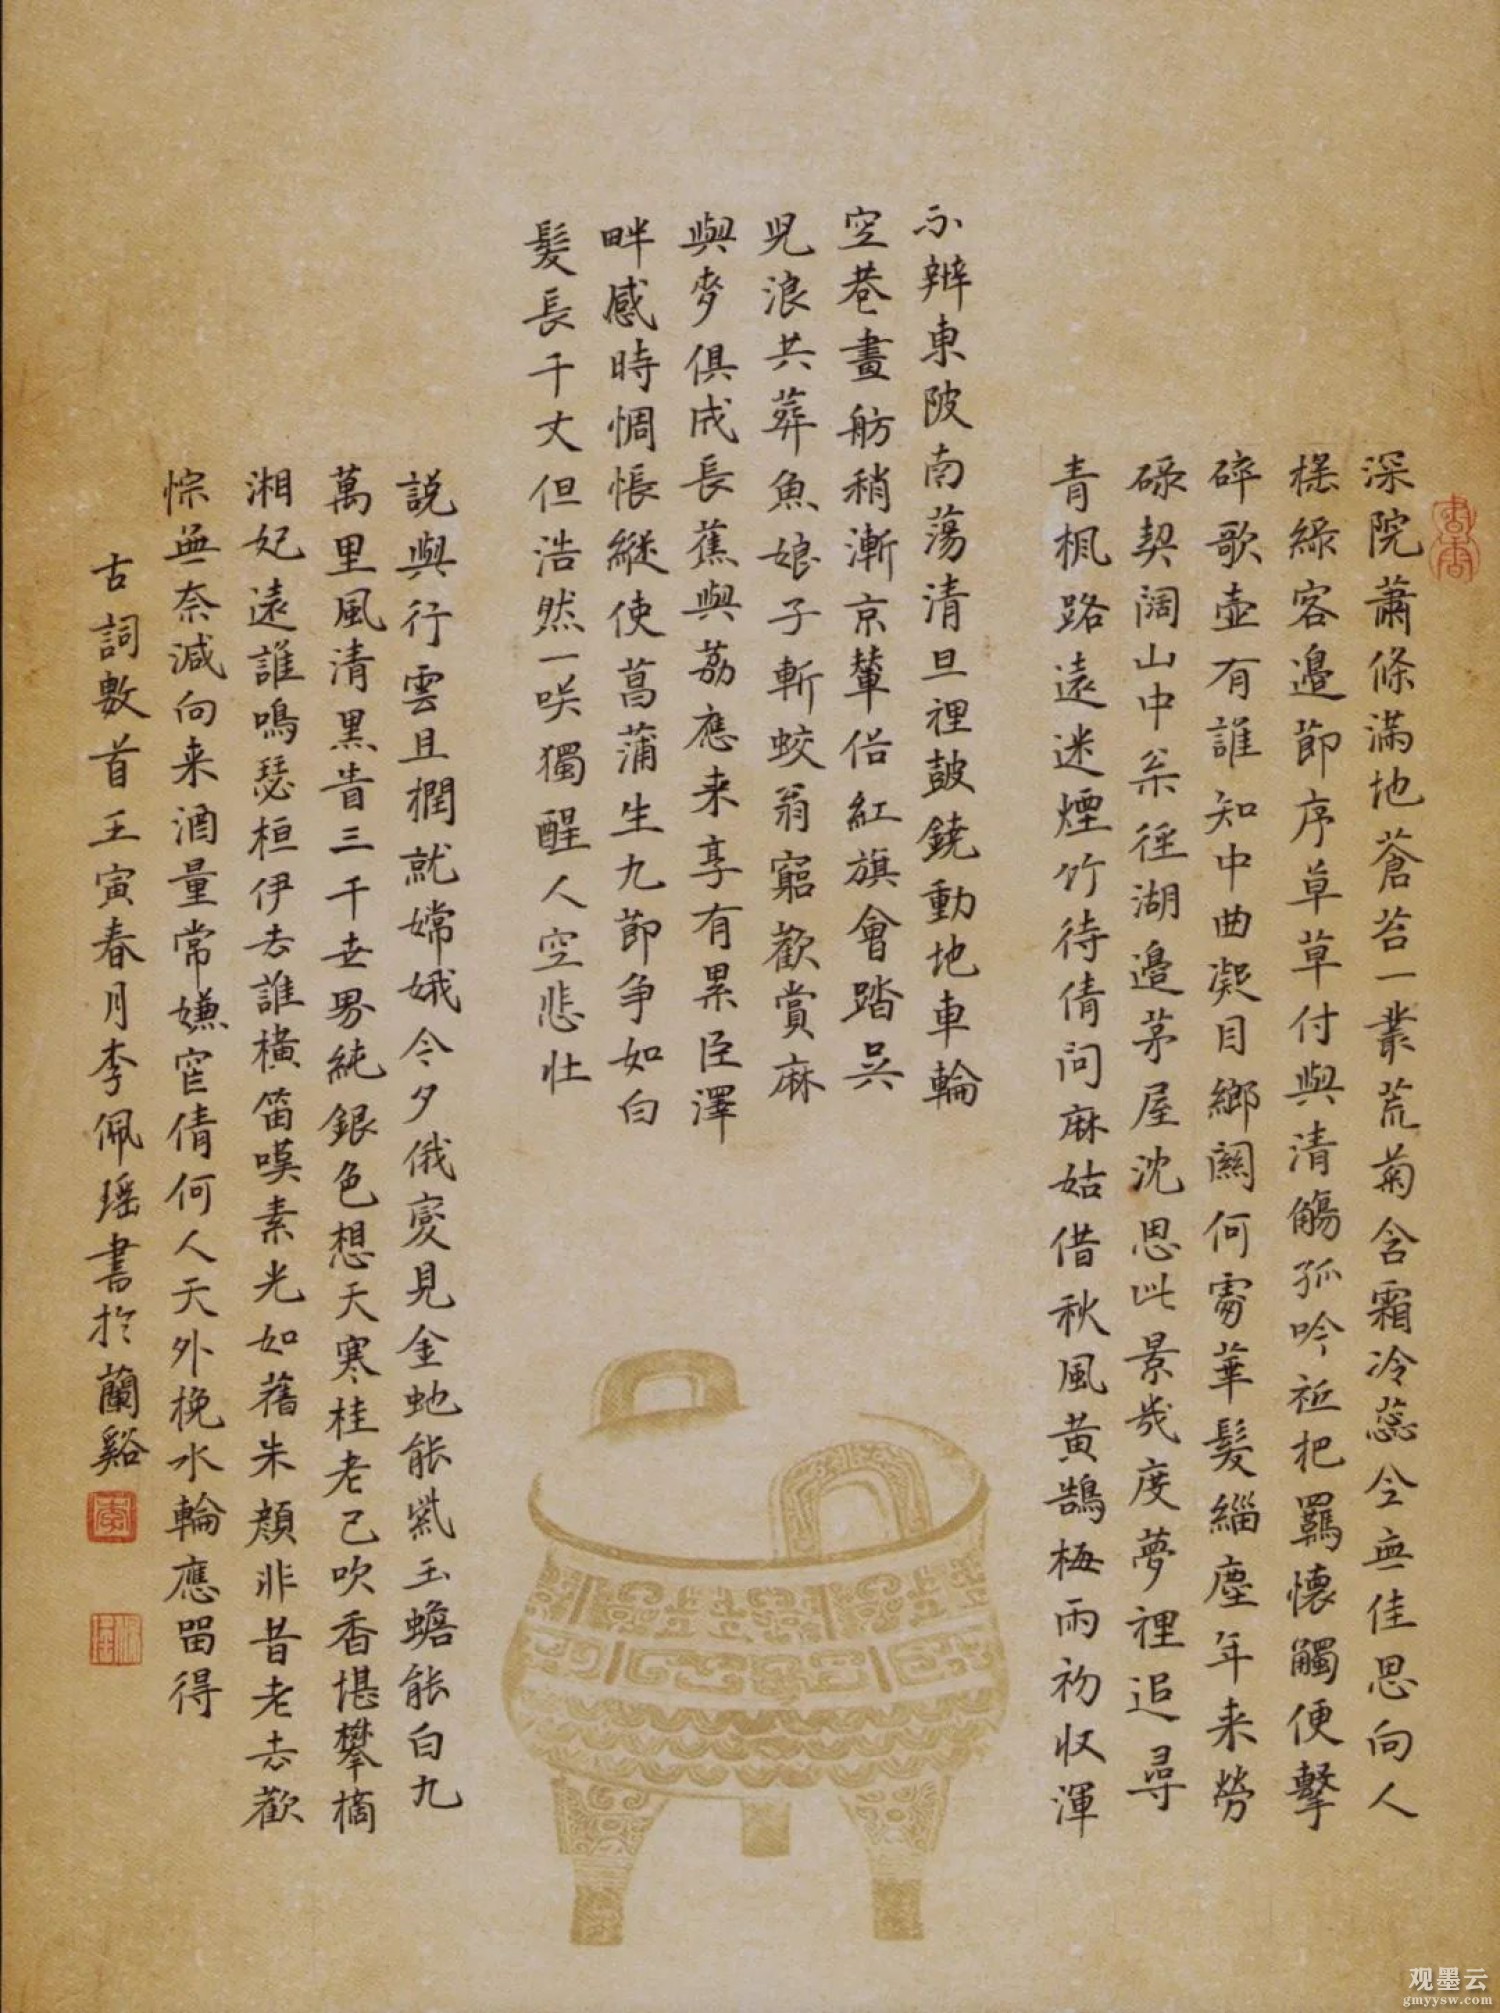 深院蕭條滿地蒼苔一叢荒菊含霜冷蕊全無佳思向人
搖綠客邊節序草草付與清觴孤吟祗把羈懷觸便擊
碎歌壺有誰知中曲凝目鄉關何處華髮緇塵年来勞
碌契闊山中桒徑湖邊茅屋沈思此景幾度夢裡追尋
青楓路遠迷煙竹待倩问麻姑借秋風黃鵠梅雨初收渾
不辨東陂南蕩清旦裡鼓鐃動地車輪
空巷畫舫稍漸京輦俗紅旗會踏吳
兒浪共葬魚娘子斬蛟翁窮歡賞麻
與麥俱成長蕉與荔應来享有累臣澤
畔感時惆悵縱使菖蒲生九節争如白
髮長千丈但浩然一咲獨醒人空悲壯
說與行雲且撋就嫦娥今夕俄變見金虵能紫玉蟾能白九
萬里風清黑眚三千世界純銀色想天寒桂老已吹香堪攀摘
湘妃遠誰鳴瑟桓伊去誰橫笛嘆素光如舊朱顏非昔老去歡
悰無奈減向来酒量常嫌窄倩何人天外挽水輪應留得
古詞數首壬寅春月李佩瑶書於蘭谿
書香
李
观墨云
gmyysw.com